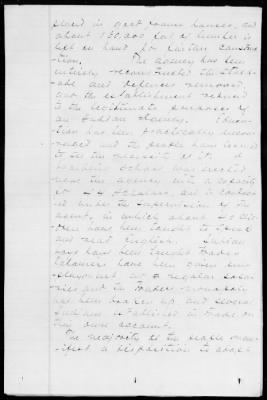 placed in good frame houses, and
about 150,000 feet of lumber is
left on hand for further construc-
tion. The agency has been
entirely reconstructed the stock-
ade and defences removed,
and the establishment reduced
to the legitimate purposes of
an Indian Agency. Educa-
tion has been practically
and the people have learned
to see the necessity of it. A
boarding School was erected
near the agency with a capacity
of scholars, and is control-
led under the supervision of the
agent, in which about 40 chil-
dren have been taught to speak
and read English. Indian
boys have been taught trades
have been given em-
ployment at regular sala-
ries and the traders monopoly
has been broken up and several
Indians established to trade on
their own account.
The majority of the people man-
ifest a disposition to adopt